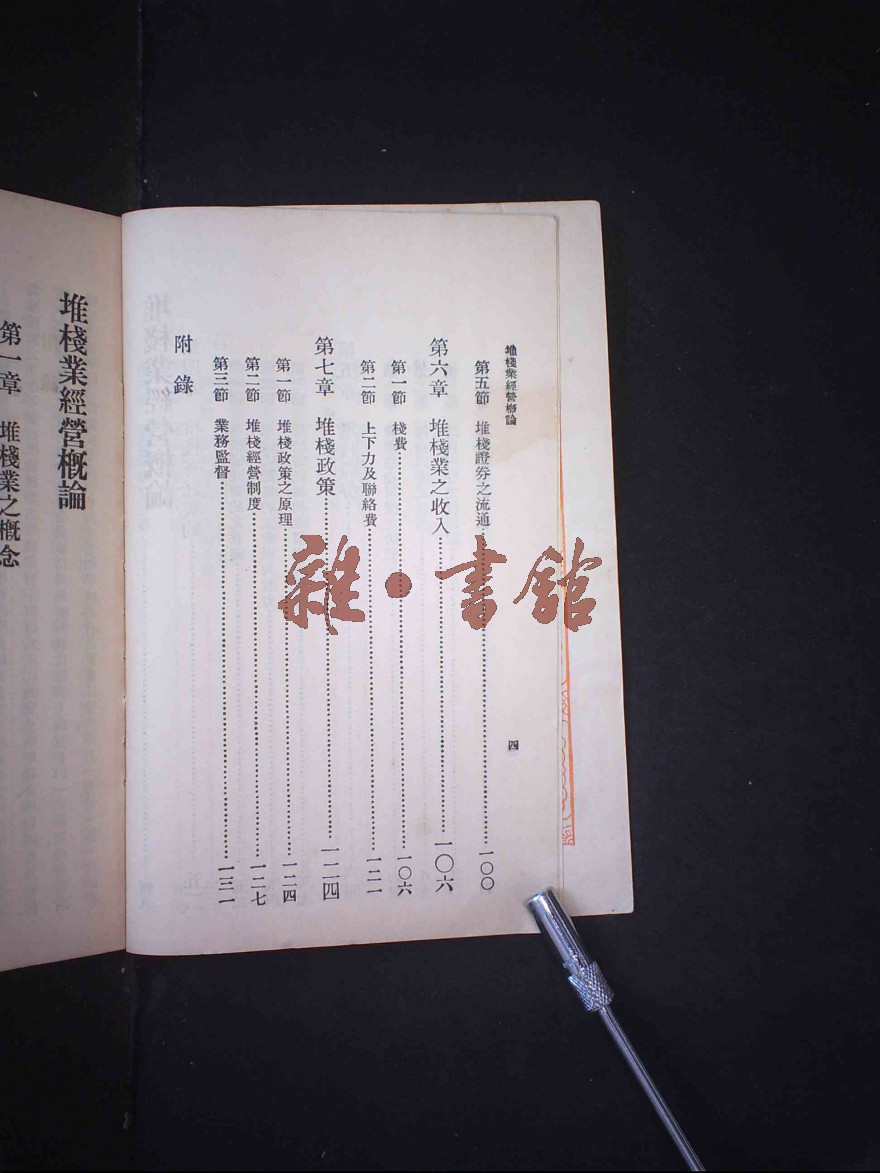 堆棧業經營槪論
四
第五節 堆棧證券之流通⋯⋯一〇〇
第六章 堆棧業之收入⋯⋯一〇六
第一節 棧費⋯⋯一〇六
第二節 上下力及聯絡費⋯⋯一二一
第七章 堆棧政策⋯⋯一二四
第一節 堆棧政策之原理⋯⋯一二四
第二節 堆棧經營制度⋯⋯一二七
第三節 業務監督⋯⋯一三一
附錄
堆棧業經營槪論
第一章 堆棧業之槪念
雜·書館